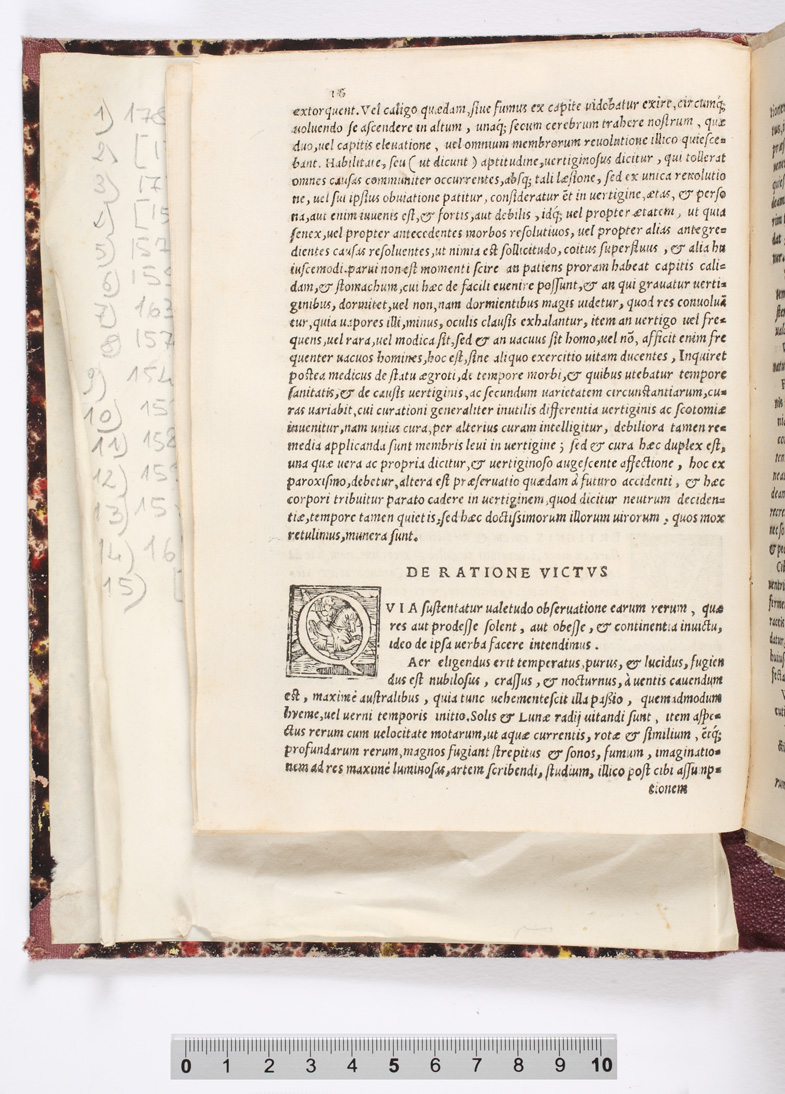 16
extorquent. Vel caligo quædam, siue fumus ex capite uidebatur exire, circumq́;
uoluendo se ascendere in altum, unaq́; secum cerebrum trahere nostrum, quæ
duo, uel capitis eleuatione, uel omnium membrorum reuolutione illico quiesce=
bant. Habilitate, seu ( ut dicunt ) aptitudine, uertiginosus dicitur, qui tollerat
omnes causas communiter occurrentes, absq; tali læsione, sed ex unica reuolutio
ne, uel sui ipsius obuiatione patitur, consideratur ēt in uertigine, ætas, & perso
na, aut enim iuuenis est, & fortis, aut debilis, idq́; uel propter ætatem, ut quia
senex, uel propter antecedentes morbos resolutiuos, uel propter alias antegre=
dientes causas resoluentes, ut nimia est sollicitudo, coitus superfluus, & alia hu
iuscemodi. parui non est momenti scire an patiens proram habeat capitis cali=
dam, & stomachum, cui hæc de facili euenire possunt, & an qui grauatur uerti=
ginibus, dormitet, uel non, nam dormientibus magis uidetur, quod res conuoluā
tur, quia uapores illi, minus, oculis clausis exhalantur, item an uertigo uel fre=
quens, uel rara, uel modica sit, sed & an uacuus sit homo, uel nō, afficit enim fre
quenter uacuos homines, hoc est, sine aliquo exercitio uitam ducentes, Inquiret
postea medicus de statu ægroti, de tempore morbi, & quibus utebatur tempore
sanitatis, & de causis uertiginis, ac secundum uarietatem circunstantiarum, cu=
ras uariabit, cui curationi generaliter inutilis differentia uertiginis ac scotomiæ
inuenitur, nam unius cura, per alterius curam intelligitur, debiliora tamen re=
media applicanda sunt membris leui in uertigine ; sed & cura hæc duplex est,
una quæ uera ac propria dicitur, & uertiginoso augescente affectione, hoc ex
paroxismo, debetur, altera est præseruatio quædam à futuro accidenti, & hæc
corpori tribuitur parato cadere in uertiginem, quod dicitur neutrum deciden=
tiæ, tempore tamen quietis, sed hæc doctissimorum illorum uirorum, quos mox
retulimus, munera sunt.
DE RATIONE VICTVS
QVIA sustentatur ualetudo obseruatione earum rerum, quæ
res aut prodesse solent, aut obesse, & continentia inuictu,
ideo de ipsa uerba facere intendimus.
Aer eligendus erit temperatus, purus, & lucidus, fugien
dus est nubilosus, crassus, & nocturnus, à uentis cauendum
est, maximè australibus, quia tunc uehementescit illa passio, quemadmodum
hyeme, uel uerni temporis initio. Solis & Lunæ radij uitandi sunt, item aspe=
ctus rerum cum uelocitate motarum, ut aquæ currentis, rotæ & similium, ētq́;
profundarum rerum, magnos fugiant strepitus & sonos, fumum, imaginatio=
nem ad res maximè luminosas, artem scribendi, studium, illico post cibi assump=
tionem
1) 178
2) [1
3) 17
4) [15
5) 157
6) 159
7) 163
8) 157
9) 154
10) 15
11) 158
12) 159
13) 15
14) 16
15) [
0 1 2 3 4 5 6 7 8 9 10